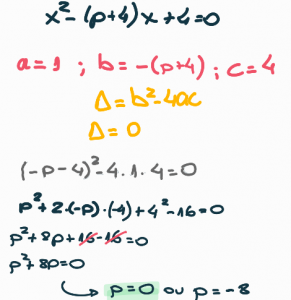 x² - (p+4)x + 4 = 0
a = 1 ; b = -(p+4) ; c = 4
Δ = b² - 4ac
Δ = 0
(-p-4)² - 4 . 1 . 4 = 0
p² + 2.(-p).(-4) + 4² - 16 = 0
p² + 8p + 16 - 16 = 0
p² + 8p = 0
p = 0 ou p = -8